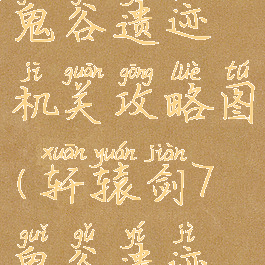 鬼谷遗迹
jī guān gōng lüè tú
机关攻略图
xuān yuán jiàn
(轩辕剑7
guǐ gǔ yí jì
鬼谷遗迹